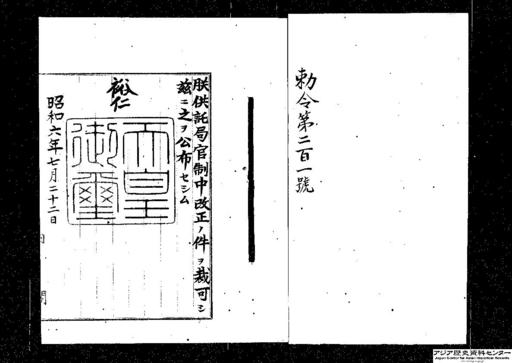 勅令第二百一號
朕供託局官制中改正ノ件ヲ裁可シ
玆ニ之ヲ公布セシム
裕仁
天皇御璽
昭和六年七月二十二日
アジア歴史資料センター
Japan Center for Asian Historical Records